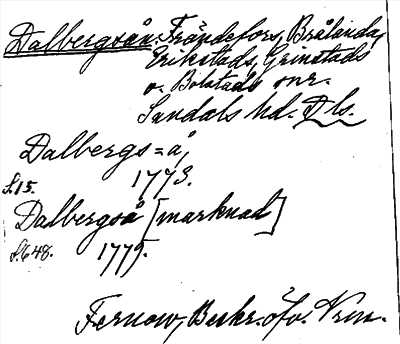 Dalbergsån. Frändefors, Brålanda,
Erikstads, Grinstads
o. Bolstads snr.
Sundals hd. Dls.
Dalbergs=å,
S.15. 1773.
Dalbergså [marknad]
S.648. 1779.
Fernow, Beskr. öfv. Vrm.